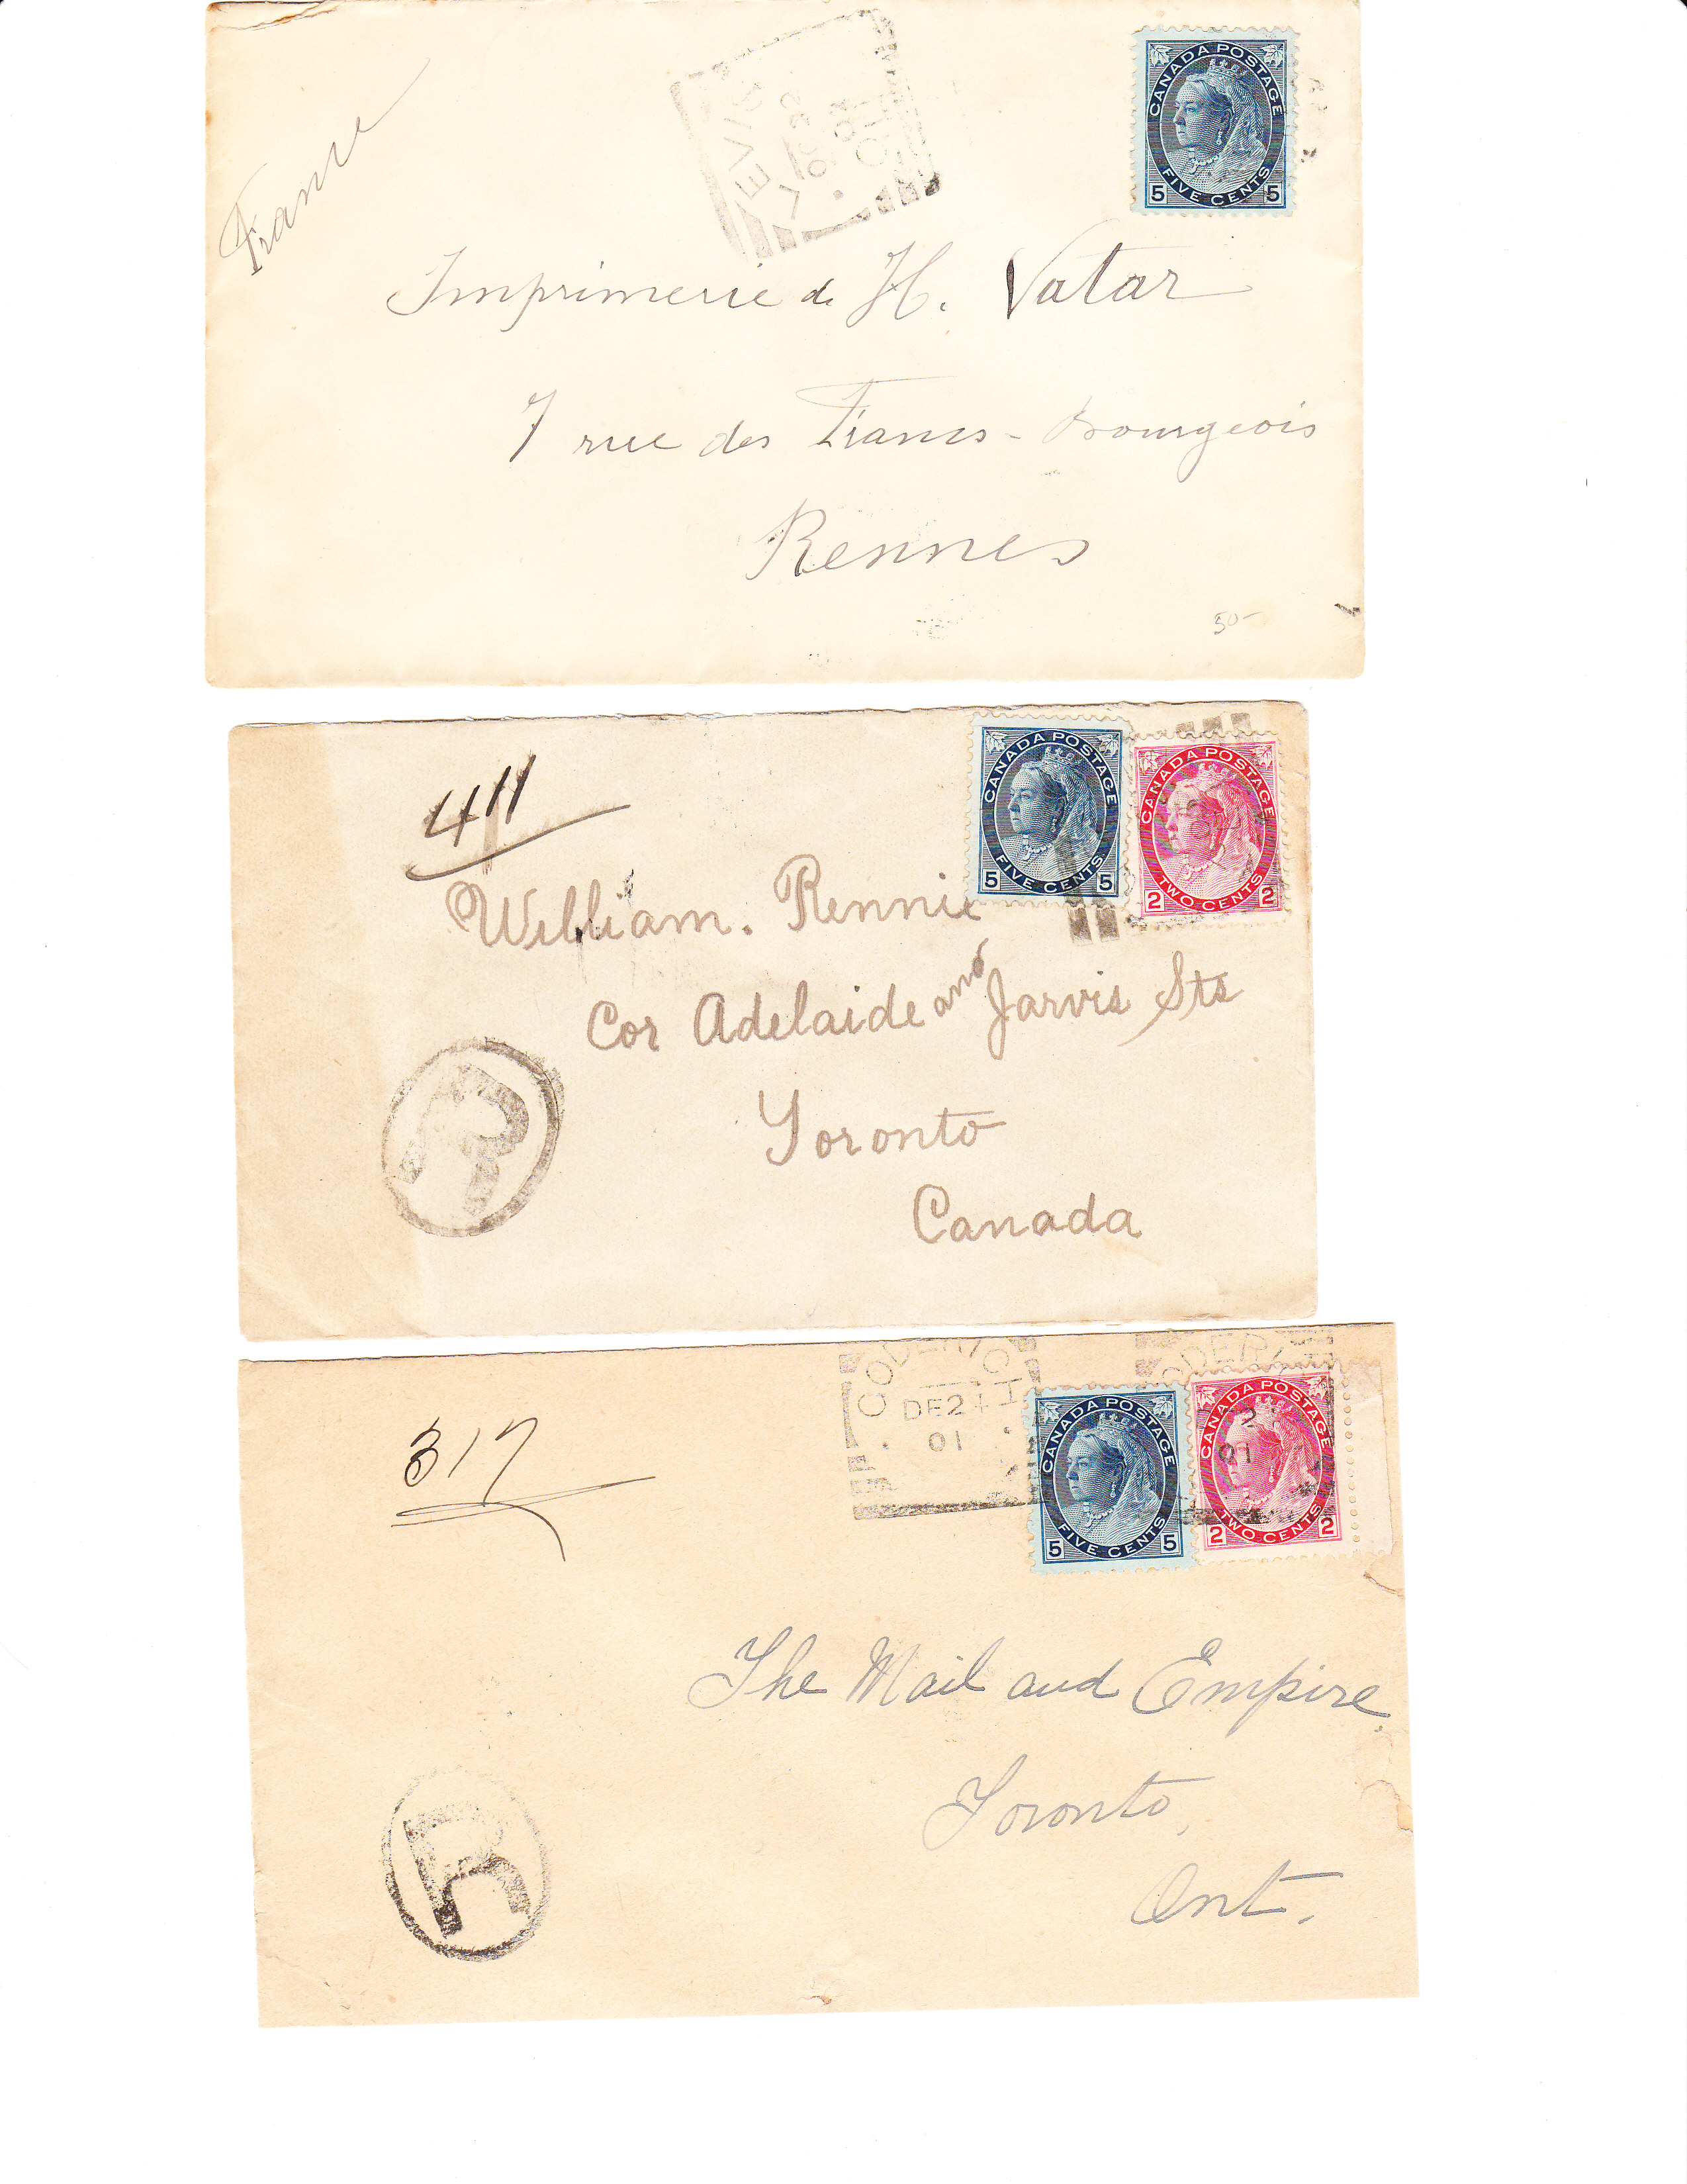 France
CANADA POSTAGE
5 FIVE CENTS 5
Imprimerie de H. Vatar
7 rue des Francs-Bourgeois
Rennes
50-
411
CANADA POSTAGE
5 FIVE CENTS 5
CANADA POSTAGE
2 TWO CENTS 2
William. Rennie
Cor Adelaide and Jarvis Sts
Toronto
Canada
R
GODERICH
DE 24
01
317
CANADA POSTAGE
5 FIVE CENTS 5
CANADA POSTAGE
2 TWO CENTS 2
01
The Mail and Empire,
Toronto,
Ont.
R